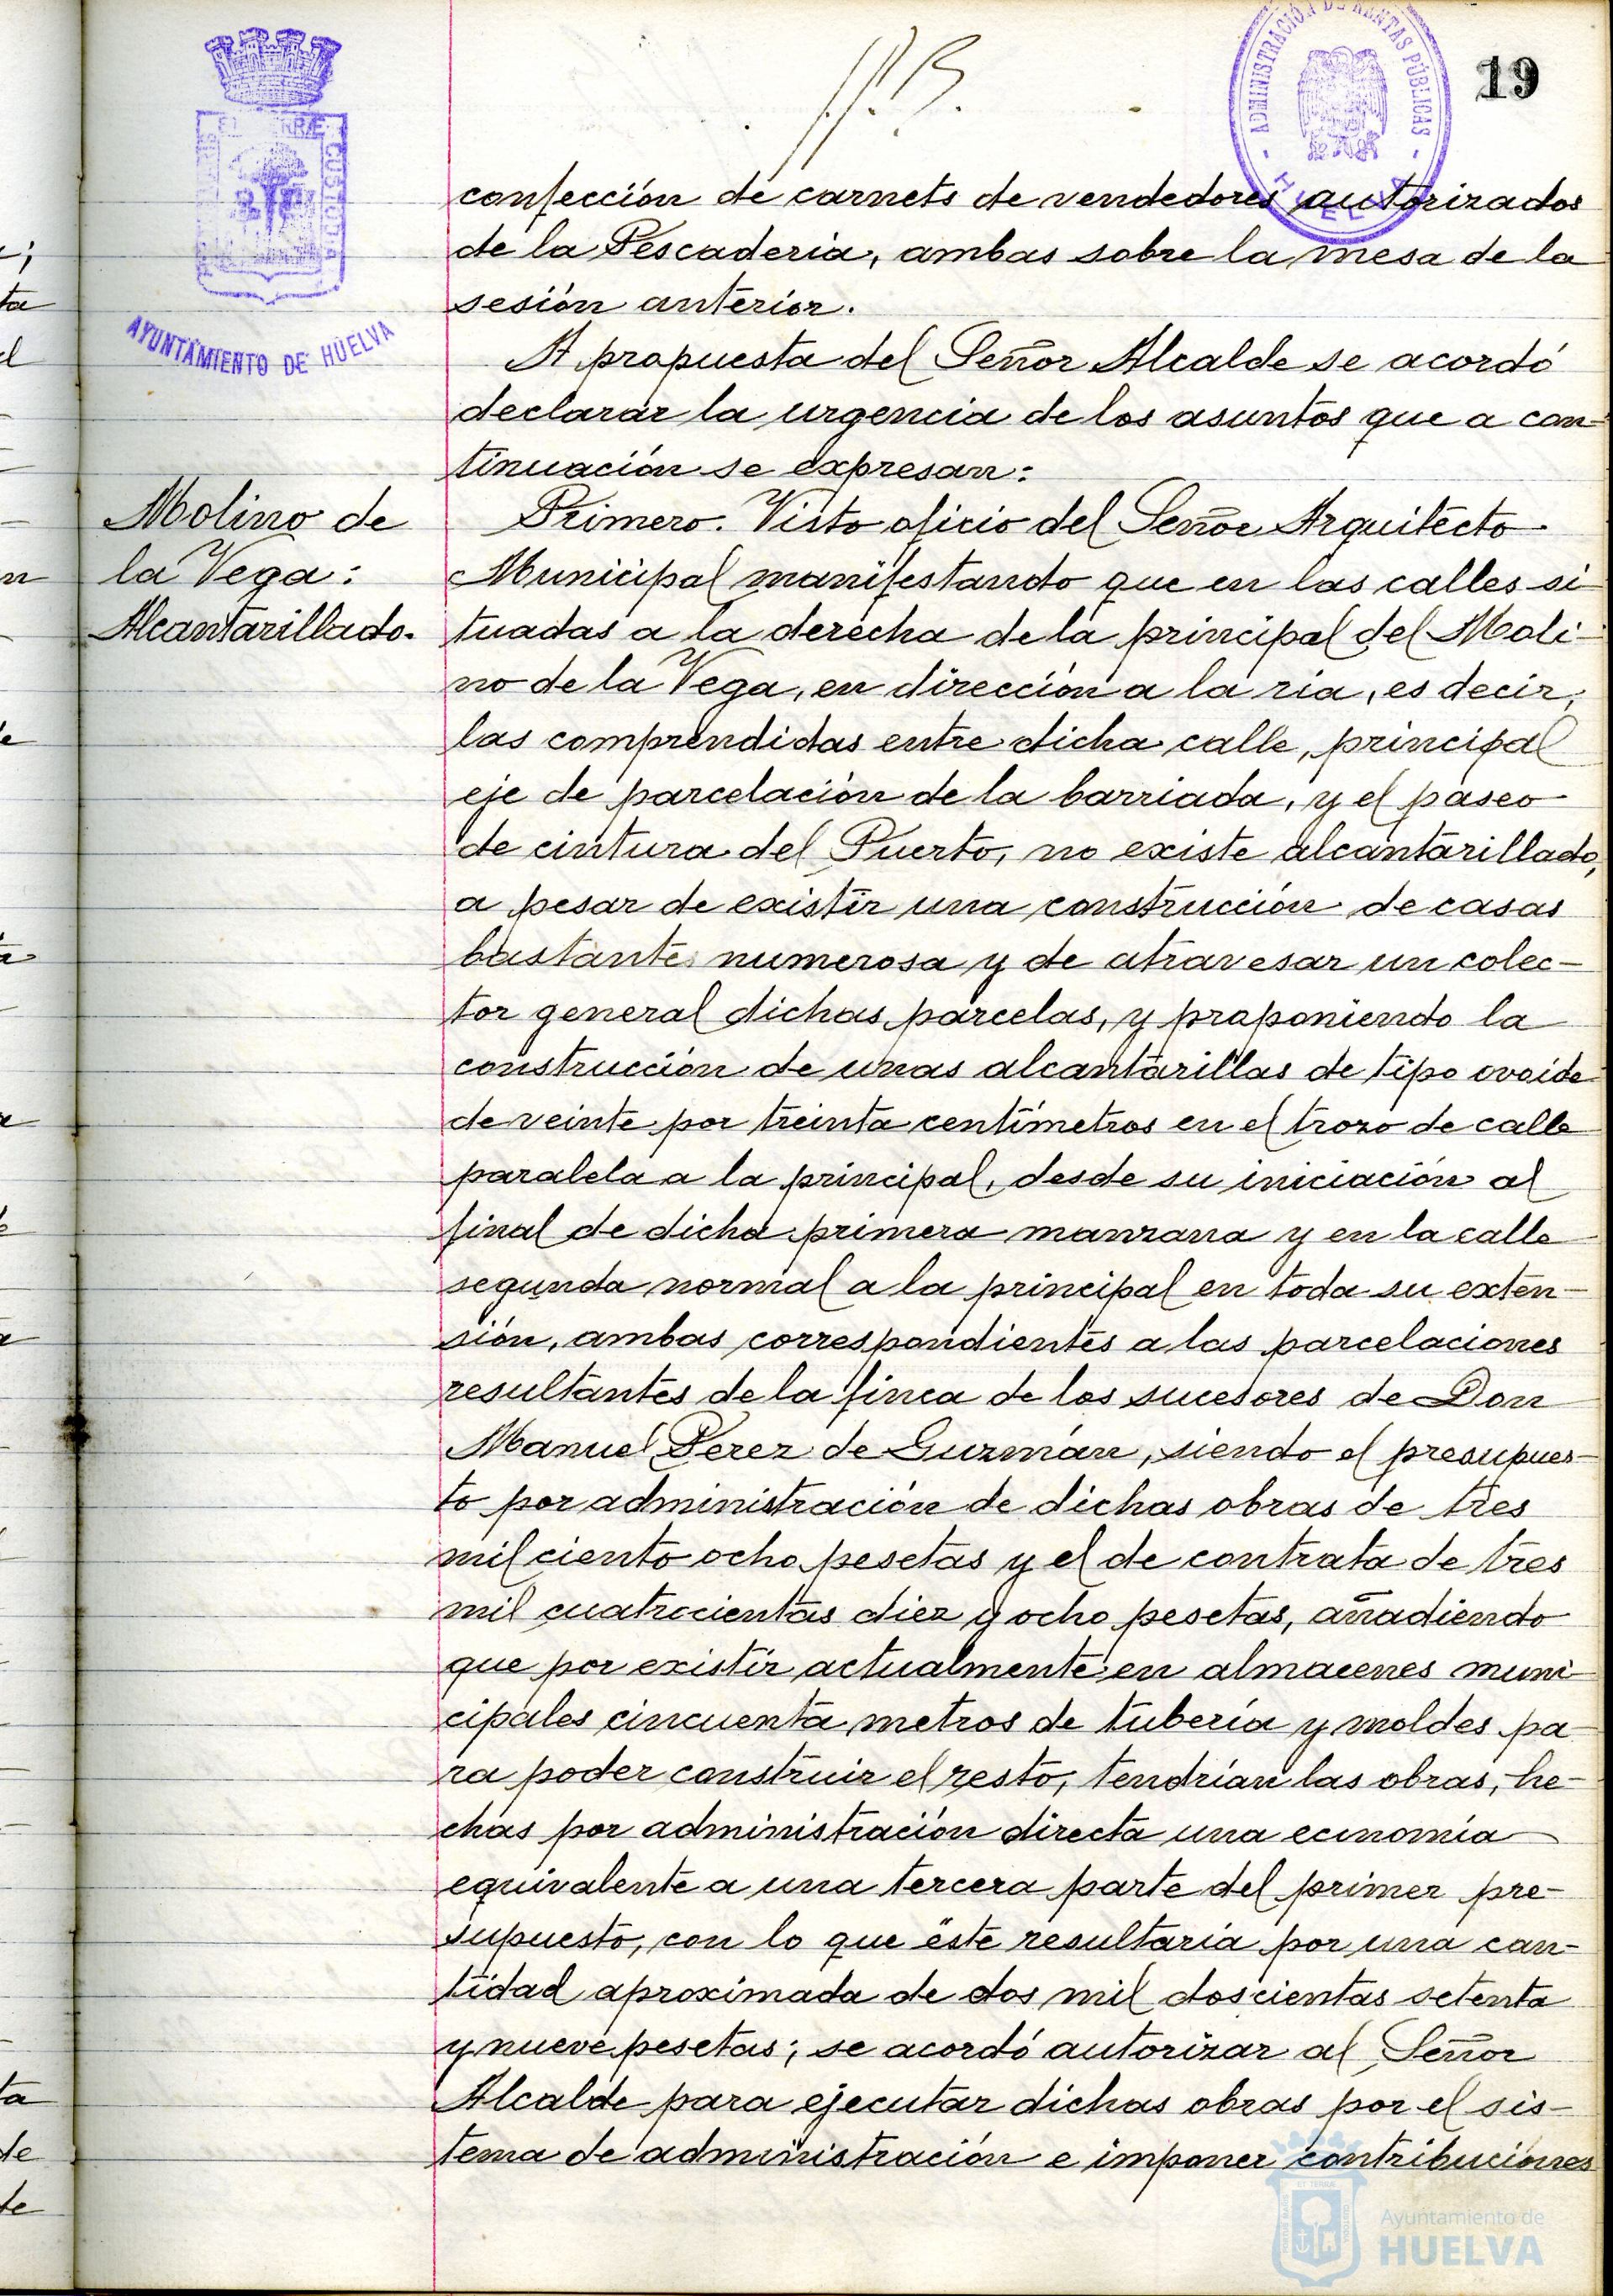 19
ADMINISTRACIÓN DE RENTAS PÚBLICAS
HUELVA
CUSTODIA
AYUNTAMIENTO DE HUELVA
confección de carnets de vendedores autorizados
de la Pescaderia, ambas sobre la mesa de la
sesión anterior.
A propuesta del Señor Alcalde se acordó
declarar la urgencia de los asuntos que a con-
tinuación se expresan:
Molino de
la Vega:
Alcantarillado.
Primero. Visto oficio del Señor Arquitecto
Municipal manifestando que en las calles si-
tuadas a la derecha de la principal del Moli-
no de la Vega, en dirección a la ria, es decir,
las comprendidas entre dicha calle, principal
eje de parcelación de la barriada, y el paseo
de cintura del Puerto, no existe alcantarillado,
a pesar de existir una construcción de casas
bastante numerosa y de atravesar un colec-
tor general dichas parcelas, y proponiendo la
construcción de unas alcantarillas de tipo ovoide
de veinte por treinta centímetros en el trozo de calle
paralela a la principal, desde su iniciación al
final de dicha primera manzana y en la calle
segunda normal a la principal en toda su exten-
sión, ambas correspondientes a las parcelaciones
resultantes de la finca de los sucesores de Don
Manuel Perez de Guzmán, siendo el presupues-
to por administración de dichas obras de tres
mil ciento ocho pesetas y el de contrata de tres
mil cuatrocientas diez y ocho pesetas, añadiendo
que por existir actualmente en almacenes muni-
cipales cincuenta metros de tubería y moldes pa-
ra poder construir el resto, tendrían las obras, he-
chas por administración directa una economía
equivalente a una tercera parte del primer pre-
supuesto, con lo que éste resultaría por una can-
tidad aproximada de dos mil doscientas setenta
y nueve pesetas; se acordó autorizar al Señor
Alcalde para ejecutar dichas obras por el sis-
tema de administración e imponer contribuciones
Ayuntamiento de
HUELVA